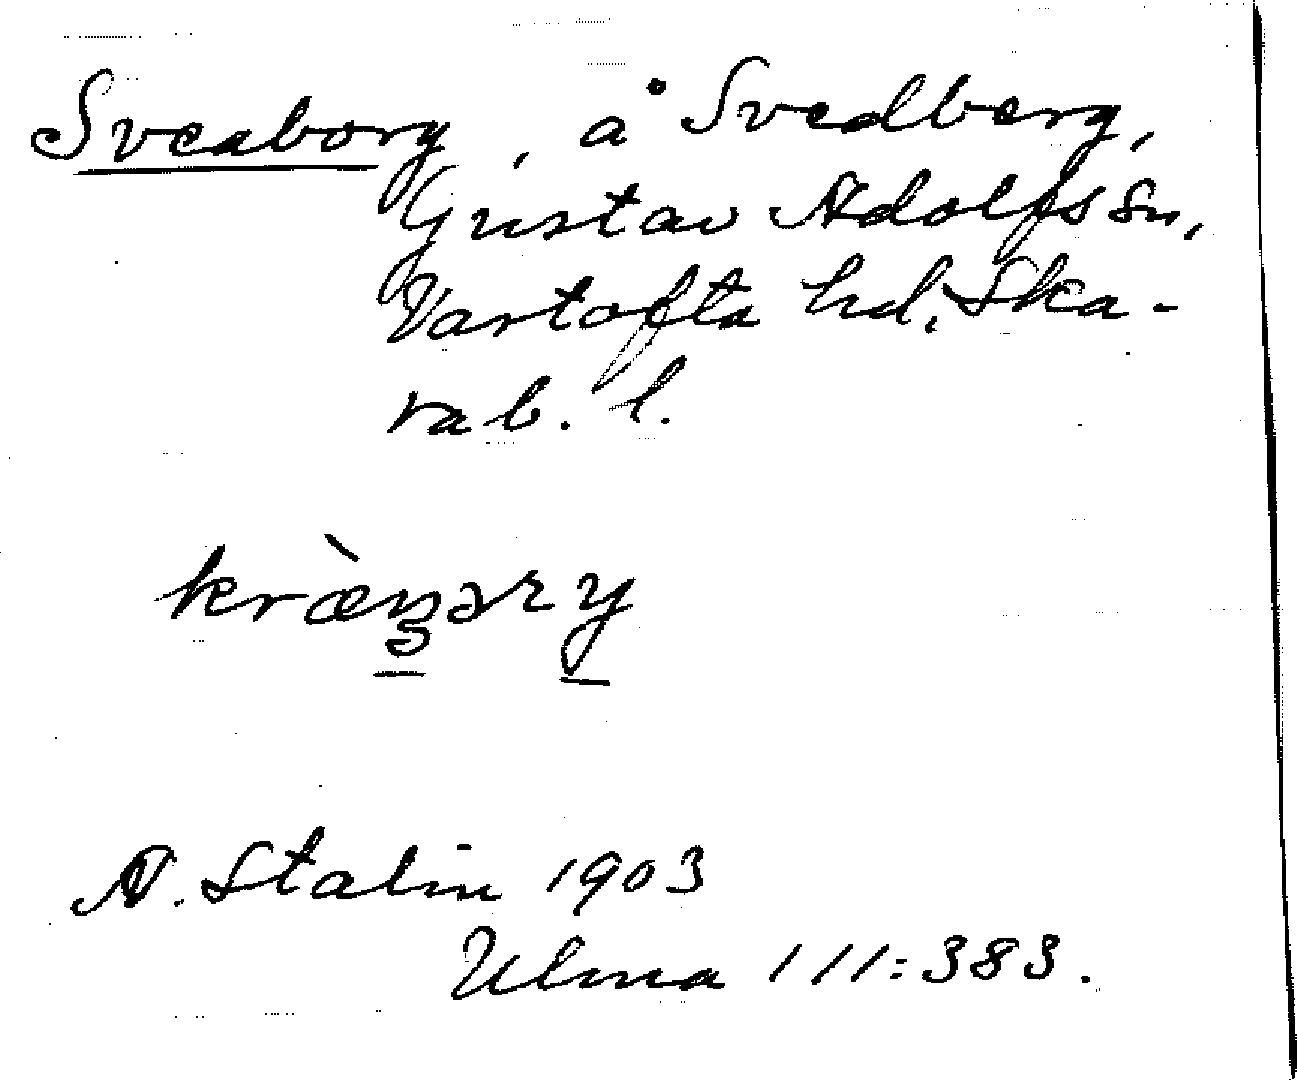 Sveaborg, å Svedberg,
Gustav Adolfs sn,
Vartofta hd, Ska-
rab. l.
A. Stalin 1903
Ulma 111:383.